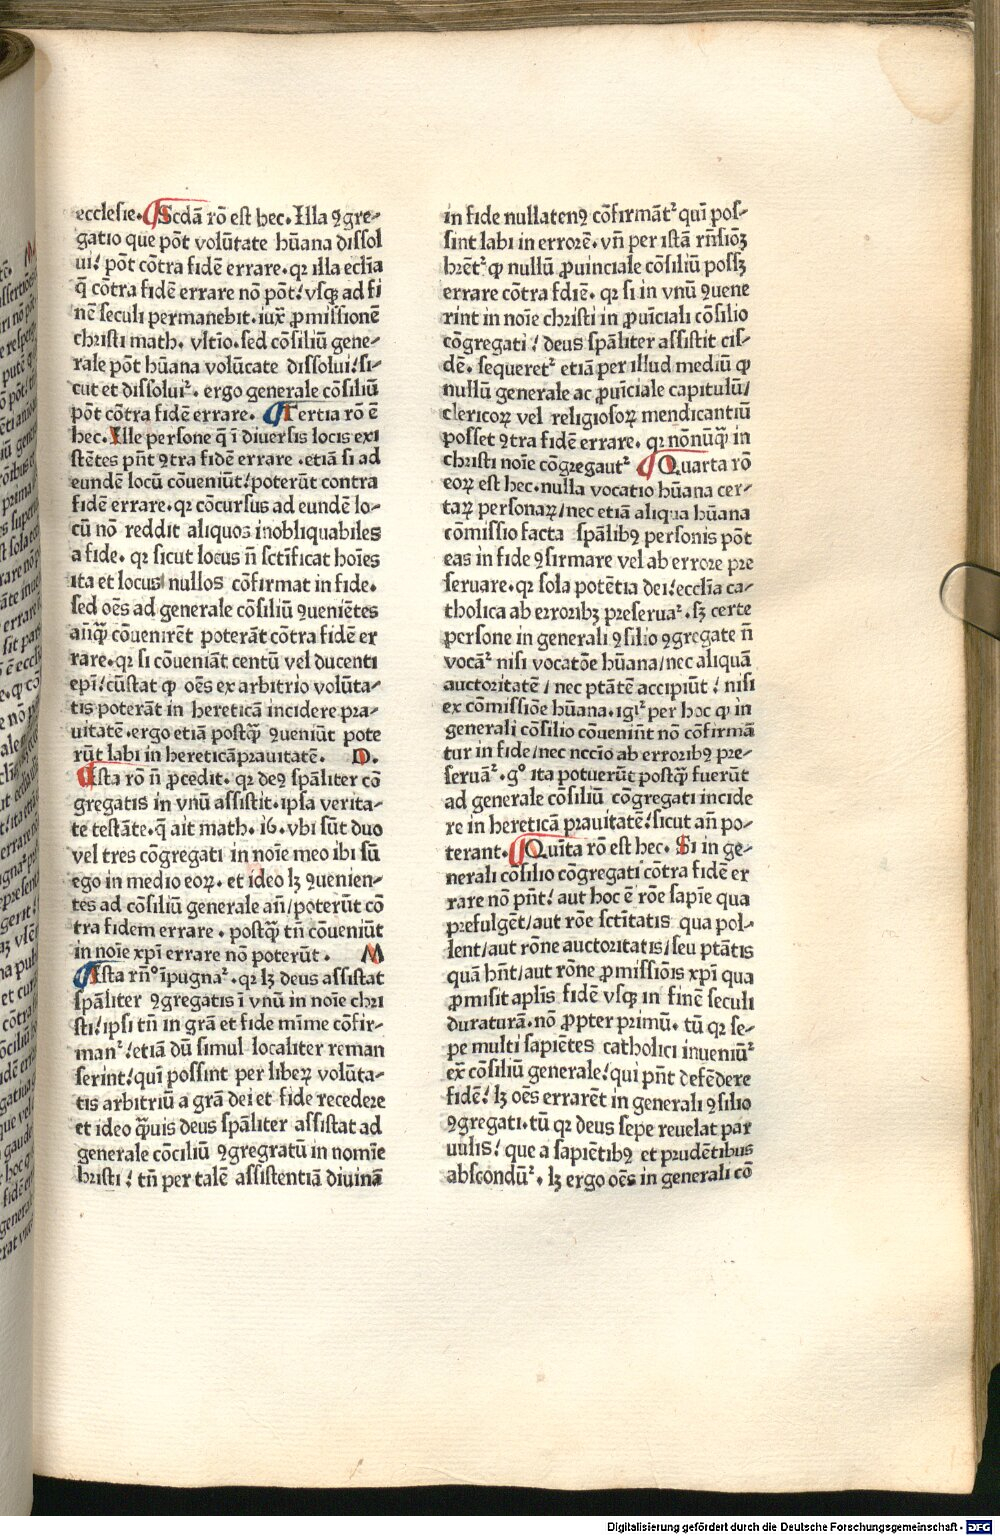 ecclesie. Scdā rō est hec. Illa ꝯgre-
gatio que pōt volūtate hūana dissol
ui: pōt cōtra fidē errare. qꝛ illa ecl̄ia
q̄ cōtra fidē errare nō pōt: vsqꝫ ad fi
nē seculi permanebit. iux̄ ꝓmissionē
christi math. vltīo. sed cōsiliū gene-
rale pōt hūana volūcate dissolui: si-
cut et dissoluiᷣ. ergo generale cōsiliū
pōt cōtra fidē errare. Tertia rō ē
hec. Ille persone q̄ ī diuersis locis exi
stētes pn̄t ꝯtra fidē errare. etiā si ad
eundē locū cōueniūt: poterūt contra
fidē errare. qꝛ cōcursus ad eundē lo-
cū nō reddit aliquos inobliquabiles
a fide. qꝛ sicut locus n̄ sctīficat hoīes
ita et locus nullos cōfirmat in fide.
sed oēs ad generale cōsiliū ꝯueniētes
an̄qꝫ̄ cōuenirēt poterāt cōtra fidē er
rare. qꝛ si cōueniāt centū vel ducenti
epī: cūstat ꝙ oēs ex arbitrio volūta-
tis poterāt in hereticā incidere pra-
uitatē. ergo etiā postqꝫ̄ ꝯueniūt pote
rūt labi in hereticāprauitatē. D.
Ista rō n̄ ꝓcedit. qꝛ deꝯ spāliter cō
gregatis in vnū assistit. ipsa verita-
te testāte. q̄ ait math. i6. vbi sūt duo
vel tres cōgregati in noīe meo ibi sū
ego in medio eoꝝ. et ideo lꝫ ꝯuenien-
tes ad cōsiliū generale an̄/poterūt cō
tra fidem errare. postqꝫ̄ tn̄ cōueniūt
in noīe xpī errare nō poterūt. M
Ista rn̄° īpugnaᷣ. qꝛ lꝫ deus assistat
spāliter ꝯgregatis ī vnū in noīe chri
sti: ipsi tn̄ in grā et fide mīme cōfir-
manᷣ: etiā dū simul localiter reman
serint: quī possint per liberꝫ volūta-
tis arbitriū a grā dei et fide recedere
et ideo qꝫ̄uis deus spāliter assistat ad
generale cōciliū ꝯgregratū in nomīe
hristi: tn̄ per talē assistentiā diuinā
in fide nullatenꝯ cōfirmātᷣ quī pos-
sint labi in errorē. vn̄ per istā rn̄siōꝫ
hr̄etᷣ ꝙ nullū ꝓuinciale cōsiliū possꝫ
errare cōtra fdiē. qꝛ si in vnū ꝯuene
rint in noīe christi in ꝓuīciali cōsilio
cōgregati: deus spāliter assistit eis-
dē. sequeretᷣ etiā per illud mediū ꝙ
nullū generale ac ꝓuīciale capitulū/
clericoꝝ vel religiosoꝝ mendicantiū
posset ꝯtra fidē errare. qꝛ nōnūqꝫ̄ in
christi noīe cōgregautᷣ Quarta rō
eoꝝ est hec. nulla vocatio hūana cer-
taꝝ personaꝝ/nec etiā aliqua hūana
cōmissio facta spālibꝯ personis pōt
eas in fide ꝯfirmare vel ab errore pre
seruare. qꝛ sola potētia dei: eccl̄ia ca-
tholica ab erroribꝫ preseruaᷣ. sꝫ certe
persone in generali ꝯsilio ꝯgregate n̄
vocāᷣ nisi vocatōe hūana/nec aliquā
auctoritatē/ nec ptātē accipiūt: nisi
ex cōmissiōe hūana. igiᷣ per hoc ꝙ in
generali cōsilio cōueniūt nō cōfirmā
tur in fide/nec nccīo ab erroribꝯ pre-
seruāᷣ. g° ita potuerūt postqꝫ̄ fuerūt
ad generale cōsiliū cōgregati incide
re in hereticā prauitatē: sicut an̄ po-
terant. Quīta rō est hec. Si in ge-
nerali cōsilio cōgregati cōtra fidē er
rare nō pn̄t: aut hoc ē rōe sapīe qua
prefulgēt/aut rōe sctītatis qua pol-
lent/aut rōne auctoritatis/seu ptātis
quā hn̄t/aut rōne ꝓmissiōis xpī qua
ꝓmisit aplīs fidē vsqꝫ in finē seculi
duraturā. nō ꝓpter primū. tū qꝛ se-
pe multi sapiētes catholici inueniūᷣ
ex̄ cōsiliū generale: qui pn̄t defēdere
fidē: lꝫ oēs errarēt in generali ꝯsilio
ꝯgregati. tū qꝛ deus sepe reuelat par
uulis: que a sapiētibꝯ et prudētibus
abscondūᷣ. lꝫ ergo oēs in generali cō
Digitalisierung gefördert durch die Deutsche Forschungsgemeinschaft - DFG